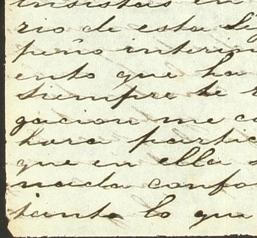 insistas en
rio de esta Le
peño interin
ento que ha
siempre te r
gacion me co
hora partic
que en ella s
nada confo
tanto lo que